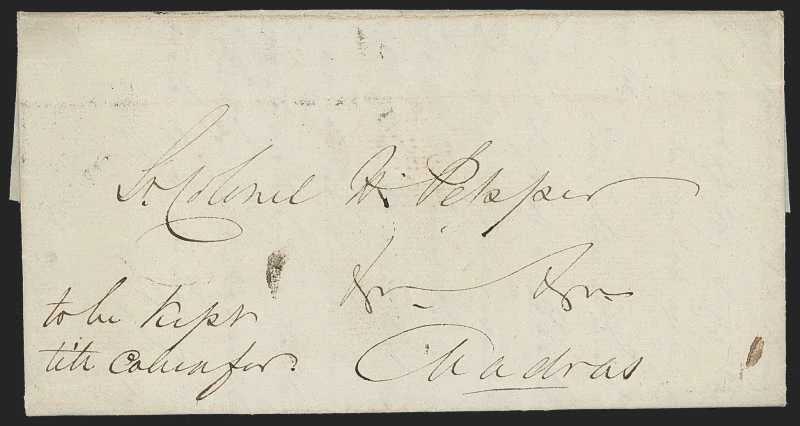 Lt. Colonel H. Pepper
&c. &c.
Madras
to be kept
till called for.